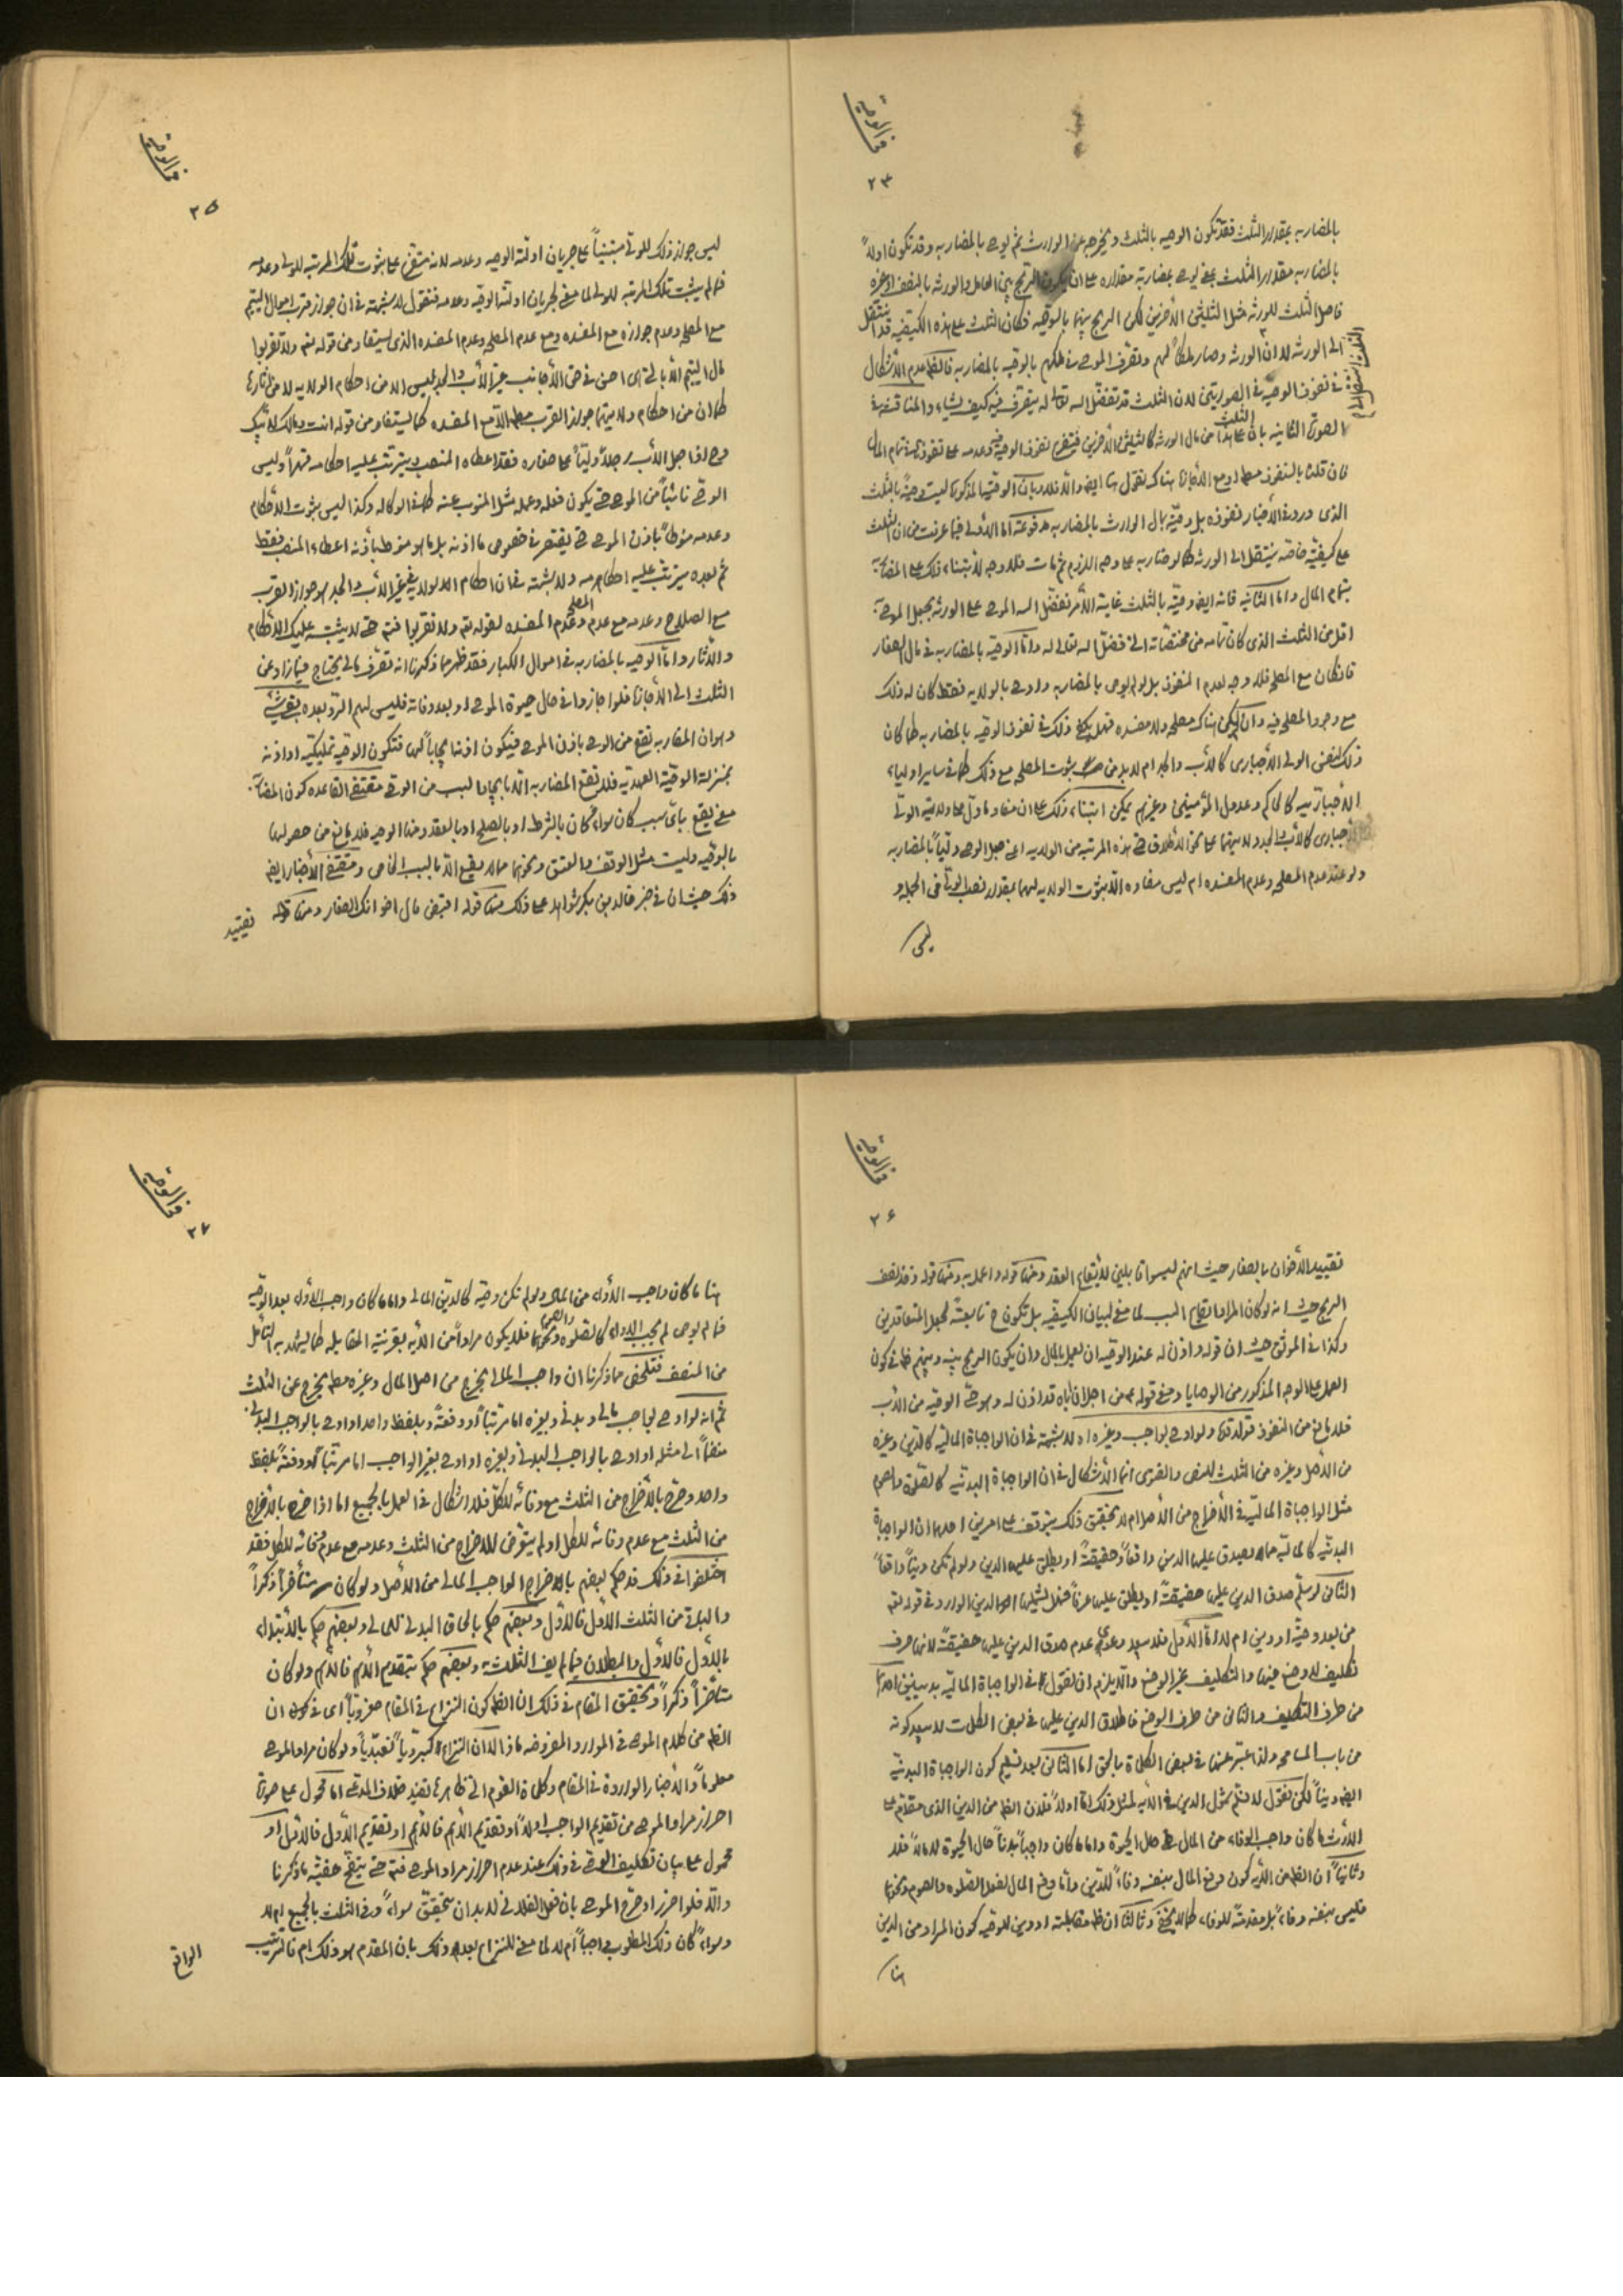 في الوصية
٢٣
بالمضاربه بمقدار الثلث فقد تكون الوصيه بالثلث ويخرجه عن الوارث ثم يوصى بالمضاربه وقد تكون اولاً
بالمضاربه بمقدار الثلث يعنى يوصى بمضاربة مقداره على ان يكون الربح بين العامل والورثه بالنصف او غيره
فاصل الثلث للورثه مثل الثلثين الأخرين لكن الربح بينهما بالوصيه فكان الثلث على هذه الكيفيه قد انتقل
الى الورثه لا ان الورثه وصار ملكاً لهم وتصرف الموصى فى ملكهم بالوصيه بالمضاربه فالظ عدم الأشكال
فى نفوذ الوصيه فى الصورتين لان الثلث قد تفضل الله تعالى له يتصرف فيه كيف يشاء والمناقشه فى
الصورة الثانيه بان الثلث على هذا من مال الورثه كالثلثين الأخرين فيتفرع نفوذ الوصيه فيه وعدمه على نفوذها فى تمام المال
فان قلنا بالنفوذ مطلقا او مع الأجازة هناك نقول هنا ايضا والا فلا وبان الوصية المذكورة ليست وصية بالثلث
الذى ورد فى الأخبار نفوذه بل وصية بمال الوارث بالمضاربه مدفوعة اما الأولى فبما عرفت من ان الثلث
على كيفية خاصه ينتقل الى الورثه كما لو ضاربه على وجه اللزوم ثم مات فلا وجه لأبتناء ذلك على المضاربة
بتمام المال واما الثانيه فانه ايض وصية بالثلث غاية الأمر تفضل اليه الموصى على الورثه بجعل الموصى به
اقل من الثلث الذى كان تمامه من مختصاته التى فضل الله تعالى له واما الوصيه بالمضاربه فى مال الصغار
فان كان مع المصلحه فلا وجه لعدم النفوذ بل لو لم يوص بالمضاربه واوصى بالولايه فقط كان له ذلك
مع وجود المصلحه فيه وان لم يكن هناك مصلحه ولا مفسده فهل يكفى ذلك فى نفوذ الوصيه بالمضاربه كما كان
ذلك لنفس الولى الأجبارى كالأب والجد ام لا بد من ثبوت المصلحه مع ذلك كما فى ساير اولياء
الأختياريه كالحاكم وعدول المؤمنين وغيرهم يمكن ابتناء ذلك على ان مفاد ما دل على ولاية الولى
الأجبارى كالأب والجد ولايتهما على نحو الأطلاق حتى هذه المرتبه من الولايه اعنى جعل الوصى وليّاً بالمضاربه
ولو عند عدم المصلحه وعدم المفسده ام ليس مفاده الا ثبوت الولايه لهما بمقدار نصب الولى فى الجمله و
ليس
في الوصية
٢٥
ليس جواز ذلك للوصى مبتنياً على جريان ادلة الوصيه وعدمه لانه متفرع على ثبوت تلك المرتبه للولى وعدمه
فما لم يثبت تلك المرتبه للولى لا معنى لجريان ادلة الوصيه وعدمه فنقول لا شبهة فى ان جواز قرب اموال اليتيم
مع المصلحه وعدم جوازه مع المفسده ومع عدم المصلحه وعدم المفسده الذى يستفاد من قوله تعم ولا تقربوا
مال اليتيم الا بالتى هى احسن فى حق الأجانب غير الأب والجد ليس الا من احكام الولايه لا من اثارها
كما ان من احكام ولايتهما جواز القرب مطلقا الا مع المفسده كما يستفاد من قوله انت ومالك لابيك
وح اذا جعل الأب رجلاً وليّاً على صغاره فقد اعطاه المنصب ويترتب عليه احكامه قهراً وليس
الوصى نائباً من الموصى حتى يكون فعله وعمله مثل المنوب عنه كما فى الوكاله وكذا ليس ثبوت الأحكام
وعدمه منوطاً باذن الموصى حتى يقتصر فى خصوص ما اذنه بل ما هو منوط باذنه اعطاء المنصب فقط
ثم بعده يترتب عليه احكامه ولا شبهة فى ان احكام الولايه فى غير الأب والجد هو جواز القرب
مع الصلاح وعدمه مع عدم المصلحه وعدم المفسده لقوله تعم ولا تقربوا فتم حتى لا يشتبه عليك الأحكام
والأثار واما الوصيه بالمضاربه فى اموال الكبار فقد ظهر مما ذكرنا انه تصرف مالى يحتاج فيما زاد عن
الثلث الى الأجازة فلو اجازوا فى حال حيوة الموصى او بعد وفاته فليس لهم الرد بعده بقى شئ
وهو ان المضاربه تقع من الوصى باذن الموصى فيكون اذنه ايجاباً لها فتكون الوصيه تمليكيه او اذنه
بمنزلة الوصية العهدية فلا تقع المضاربه الا بايجاد السبب من الوصى مقتضى القاعده كون المضاربة
معنى يقع باى سبب كان سواء كان بالشرط او بالصلح او بالعقد ومنها الوصيه فلا مانع من حصولها
بالوصيه وليست مثل الوقف والعتق ونحوهما مما لا يقع الا بالسبب الخاص ومقتضى الأخبار ايض
ذلك حيث ان فى خبر خالد بن بكر شواهد على ذلك منها قوله اقبض مال اخوانك الصغار ومنها قوله
تقييد
في الوصية
٢۶
تقييد الأخوان بالصغار حيث انهم ليسوا قابلين لأيقاع العقد ومنها قوله واعمل به ومنها قوله وخذ نصف
الربح حيث انه لو كان المراد ايقاع السبب لا معنى لبيان الكيفيه بل تكون ح تابعة لجعل المتعاقدين
وكذا فى الموثق حيث ان قوله واذن له عند الوصيه ان يعمل بالمال وان يكون الربح بينه وبينهم كما فى كون
العمل على الوجه المذكور من الوصايا ومعنى قوله ع من اجل ان اباه قد اذن له وهو حى الوصيه من الأب
فلا مانع من النفوذ قوله قده ولو اوصى بواجب وغيره اه لا شبهة فى ان الواجبات الماليه كالدين وغيره
من الأصل وغيره من الثلث للنص والفتوى انما الأشكال فى ان الواجبات البدنيه كالصلوة والصوم
مثل الواجبات الماليه فى الأخراج من الأصل ام لا تحقيق ذلك يتوقف على امرين احدهما ان الواجبات
البدنيه كالماليه مما يصدق عليها الدين واقعاً وحقيقةً او يطلق عليها الدين ولو لم تكن ديناً واقعاً
الثانى لو سلم صدق الدين عليها حقيقةً او يطلق عليها عرفاً فهل يشملها الدين الوارد فى قوله تعم
من بعد وصية او دين ام لا اما الأول فلا يبعد دعوى عدم صدق الدين عليها حقيقةً لانها صرف
تكليف لا وضع فيها والتكليف غير الوضع والا يلزم ان نقول فى الواجبات الماليه بدينين احدهما
من طرف التكليف والثانى من طرف الوضع فاطلاق الدين عليها فى بعض الكلمات لا يبعد كونه
من باب المسامحه ولذا عبر عنها فى بعض الكلمات بالحق اما الثانى بعد تسليم كون الواجبات البدنيه
ايض ديناً لكن نقول لا نسلم شمول الدين فى الأيه لمثل ذلك اما اولاً فلان الظ من الدين الذى مقدم على
الأرث ما كان واجب الوفاء من المال فى حال الحيوة واما ما كان واجباً بدناً حال الحيوة لا مالاً فلا
وثانياً ان الظ من الأيه كون دفع المال بنفسه وفاءً للدين واما دفع المال لفعل الصلوه والصوم ونحوها
فليس بنفسه وفاءً بل مقدمةً للوفاء كما لا يخفى وثالثاً ان ظ مقابلته او دين للوصيه كون المراد من الدين
هنا
في الوصية
٢٧
هنا ما كان واجب الأداء من المال ولو لم تكن وصية كالدين المالى واما ما كان واجب الأداء بعد الوصيه
فما لم يوص لم يجب الأداء كالصلوه والصوم ونحوها فلا يكون مراداً من الأيه بقرينة المقابله كما يشهد به التأمل
من المنصف فتلخص مما ذكرنا ان واجب المالى يخرج من اصل المال وغيره مطلقا يخرج عن الثلث
ثم انه لو اوصى بواجب مالى وبدنى وبغيره اما مرتباً او دفعةً وبلفظ واحد او اوصى بالواجب البدنى
منضماً الى مثله او اوصى بالواجب البدنى وبغيره او اوصى بغير الواجب اما مرتباً او دفعةً بلفظ
واحد وصرح بالأخراج من الثلث مع وفائه للكل فلا اشكال فى العمل بالجميع اما اذا صرح بالأخراج
من الثلث مع عدم وفائه للكل او لم يتعرض للاخراج من الثلث وعدمه مع عدم وفائه للكل فقد
اختلفوا فى ذلك قد حكم بعضهم باخراج الواجب المالى من الأصل ولو كان متأخراً ذكراً
والبداة من الثلث الأول فالأول وبعضهم حكم بالحاق البدنى للمالى وبعضهم حكم بالأبتداء
بالأول فالأول والبطلان فيما لم يف الثلث به وبعضهم حكم بتقديم الأهم فالأهم ولو كان
متأخراً ذكراً وتحقيق المقام فى ذلك ان الظ كون النزاع فى المقام صغروياً اى فى ان
الظ من كلام الموصى فى الموارد المفروضه ماذا لا ان النزاع كبروياً تعبدياً ولو كان مراد الموصى
معلوماً والأخبار الوارده فى المقام وكلمات القوم التى ظاهرها يفيد خلاف المدعى اما محمول على صورة
احراز مراد الموصى من تقديم الواجب اولاً او تقديم الأهم فالأهم او تقديم الأول فالأول او
محمول على بيان تكليف الوصى فى ذلك عند عدم احراز مراد الموصى فتم حتى يتضح حقيه ما ذكرنا
والا فلو احرز او صرح الموصى بان فعل الفلانى لا بد ان يتحقق سواء وفى الثلث بالجميع ام لا
وسواء كان ذلك المطلوب واجباً ام لا لا معنى للنزاع بعده وذلك بان المقدم هو ذلك ام فالترتيب
الواقع